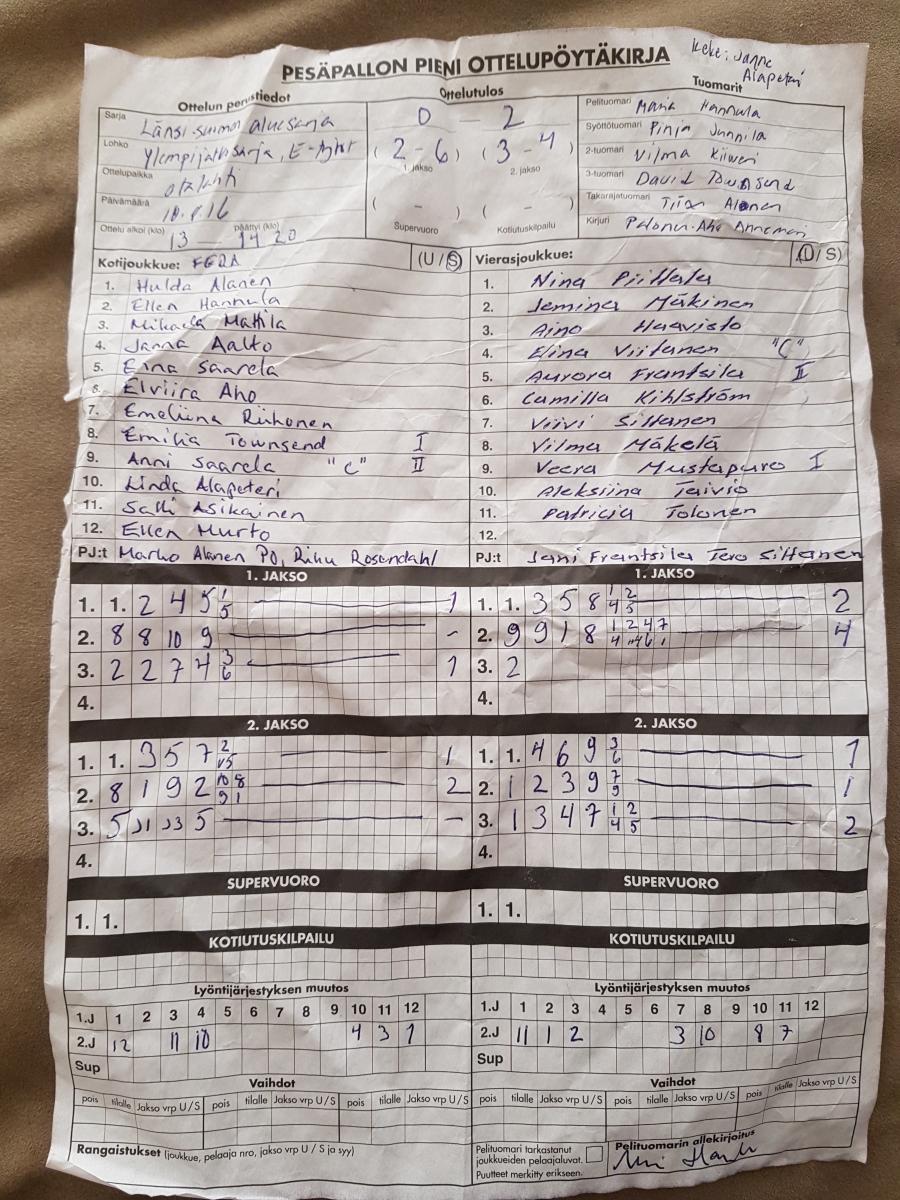 PESÄPALLON PIENI OTTELUPÖYTÄKIRJA
Keke: Janne
Alapeteri
Ottelun perustiedot
Ottelutulos
Tuomarit
Sarja
Länsi-suomen aluesarja
Lohko
Ylempijatkosarja, E-tytöt
Ottelupaikka
otalahti
Päivämäärä
10.8.16
Ottelu alkoi (klo) 13 — päättyi (klo) 14 20
0 – 2
( 2 - 6 ) ( 3 - 4 )
1. jakso 2. jakso
( - ) ( - )
Supervuoro Kotiutuskilpailu
Pelituomari Maria Hannula
Syöttötuomari Pinja Junnila
2-tuomari Vilma
3-tuomari David Townsend
Takarajatuomari Tiian Alanen
Kirjuri Pelonen-Aho Annemari
Kotijoukkue: FERA (U / S)
1. Hulda Alanen
2. Ellen Hannula
3. Mikaela Mattila
4. Janna Aalto
5. Eina Saarela
6. Elviira Aho
7. Emeliina Riihonen
8. Emilia Townsend I
9. Anni Saarela "C" II
10. Linda Alapeteri
11. Salli Asikainen
12. Ellen Murto
PJ:t Marko Alanen PO, Riku Rosendahl
Vierasjoukkue: (U / S)
1. Nina Piittala
2. Jemina Mäkinen
3. Aino Haavisto
4. Elina Viitanen "C"
5. Aurora Frantsila II
6. Camilla Kihlström
7. Viivi Siltanen
8. Vilma Mäkelä
9. Veera Mustapuro I
10. Aleksiina Taivio
11. Patricia Tolonen
12.
PJ:t Jani Frantsila Tero Siltanen
1. JAKSO
1. 1. 2 4 5 1 5 1
2. 8 8 10 9 -
3. 2 2 7 4 3 6 1
4.
1. JAKSO
1. 1. 3 5 8 1 2 4 5 2
2. 9 9 1 8 1 2 4 7 4
3. 2
4.
2. JAKSO
1. 1. 3 5 7 2 1
2. 8 1 9 2 10 8 9 1 2
3. 5 11 5 -
4.
2. JAKSO
1. 1. 4 6 9 3 6 1
2. 1 2 3 9 7 9 1
3. 1 3 4 7 1 2 4 5 2
4.
SUPERVUORO
1. 1.
SUPERVUORO
1. 1.
KOTIUTUSKILPAILU
KOTIUTUSKILPAILU
Lyöntijärjestyksen muutos
1.J 1 2 3 4 5 6 7 8 9 10 11 12
2.J 12 11 10 4 3 1
Sup
Lyöntijärjestyksen muutos
1.J 1 2 3 4 5 6 7 8 9 10 11 12
2.J 11 1 2 3 10 8 7
Sup
Vaihdot
pois tilalle Jakso vrp U / S pois tilalle Jakso vrp U / S pois tilalle Jakso vrp U / S
Vaihdot
pois tilalle Jakso vrp U / S pois tilalle Jakso vrp U / S pois tilalle Jakso vrp U / S
Rangaistukset (joukkue, pelaaja nro, jakso vrp U / S ja syy)
Pelituomari tarkastanut
joukkueiden pelaajaluvat.
Puutteet merkitty erikseen.
Pelituomarin allekirjoitus